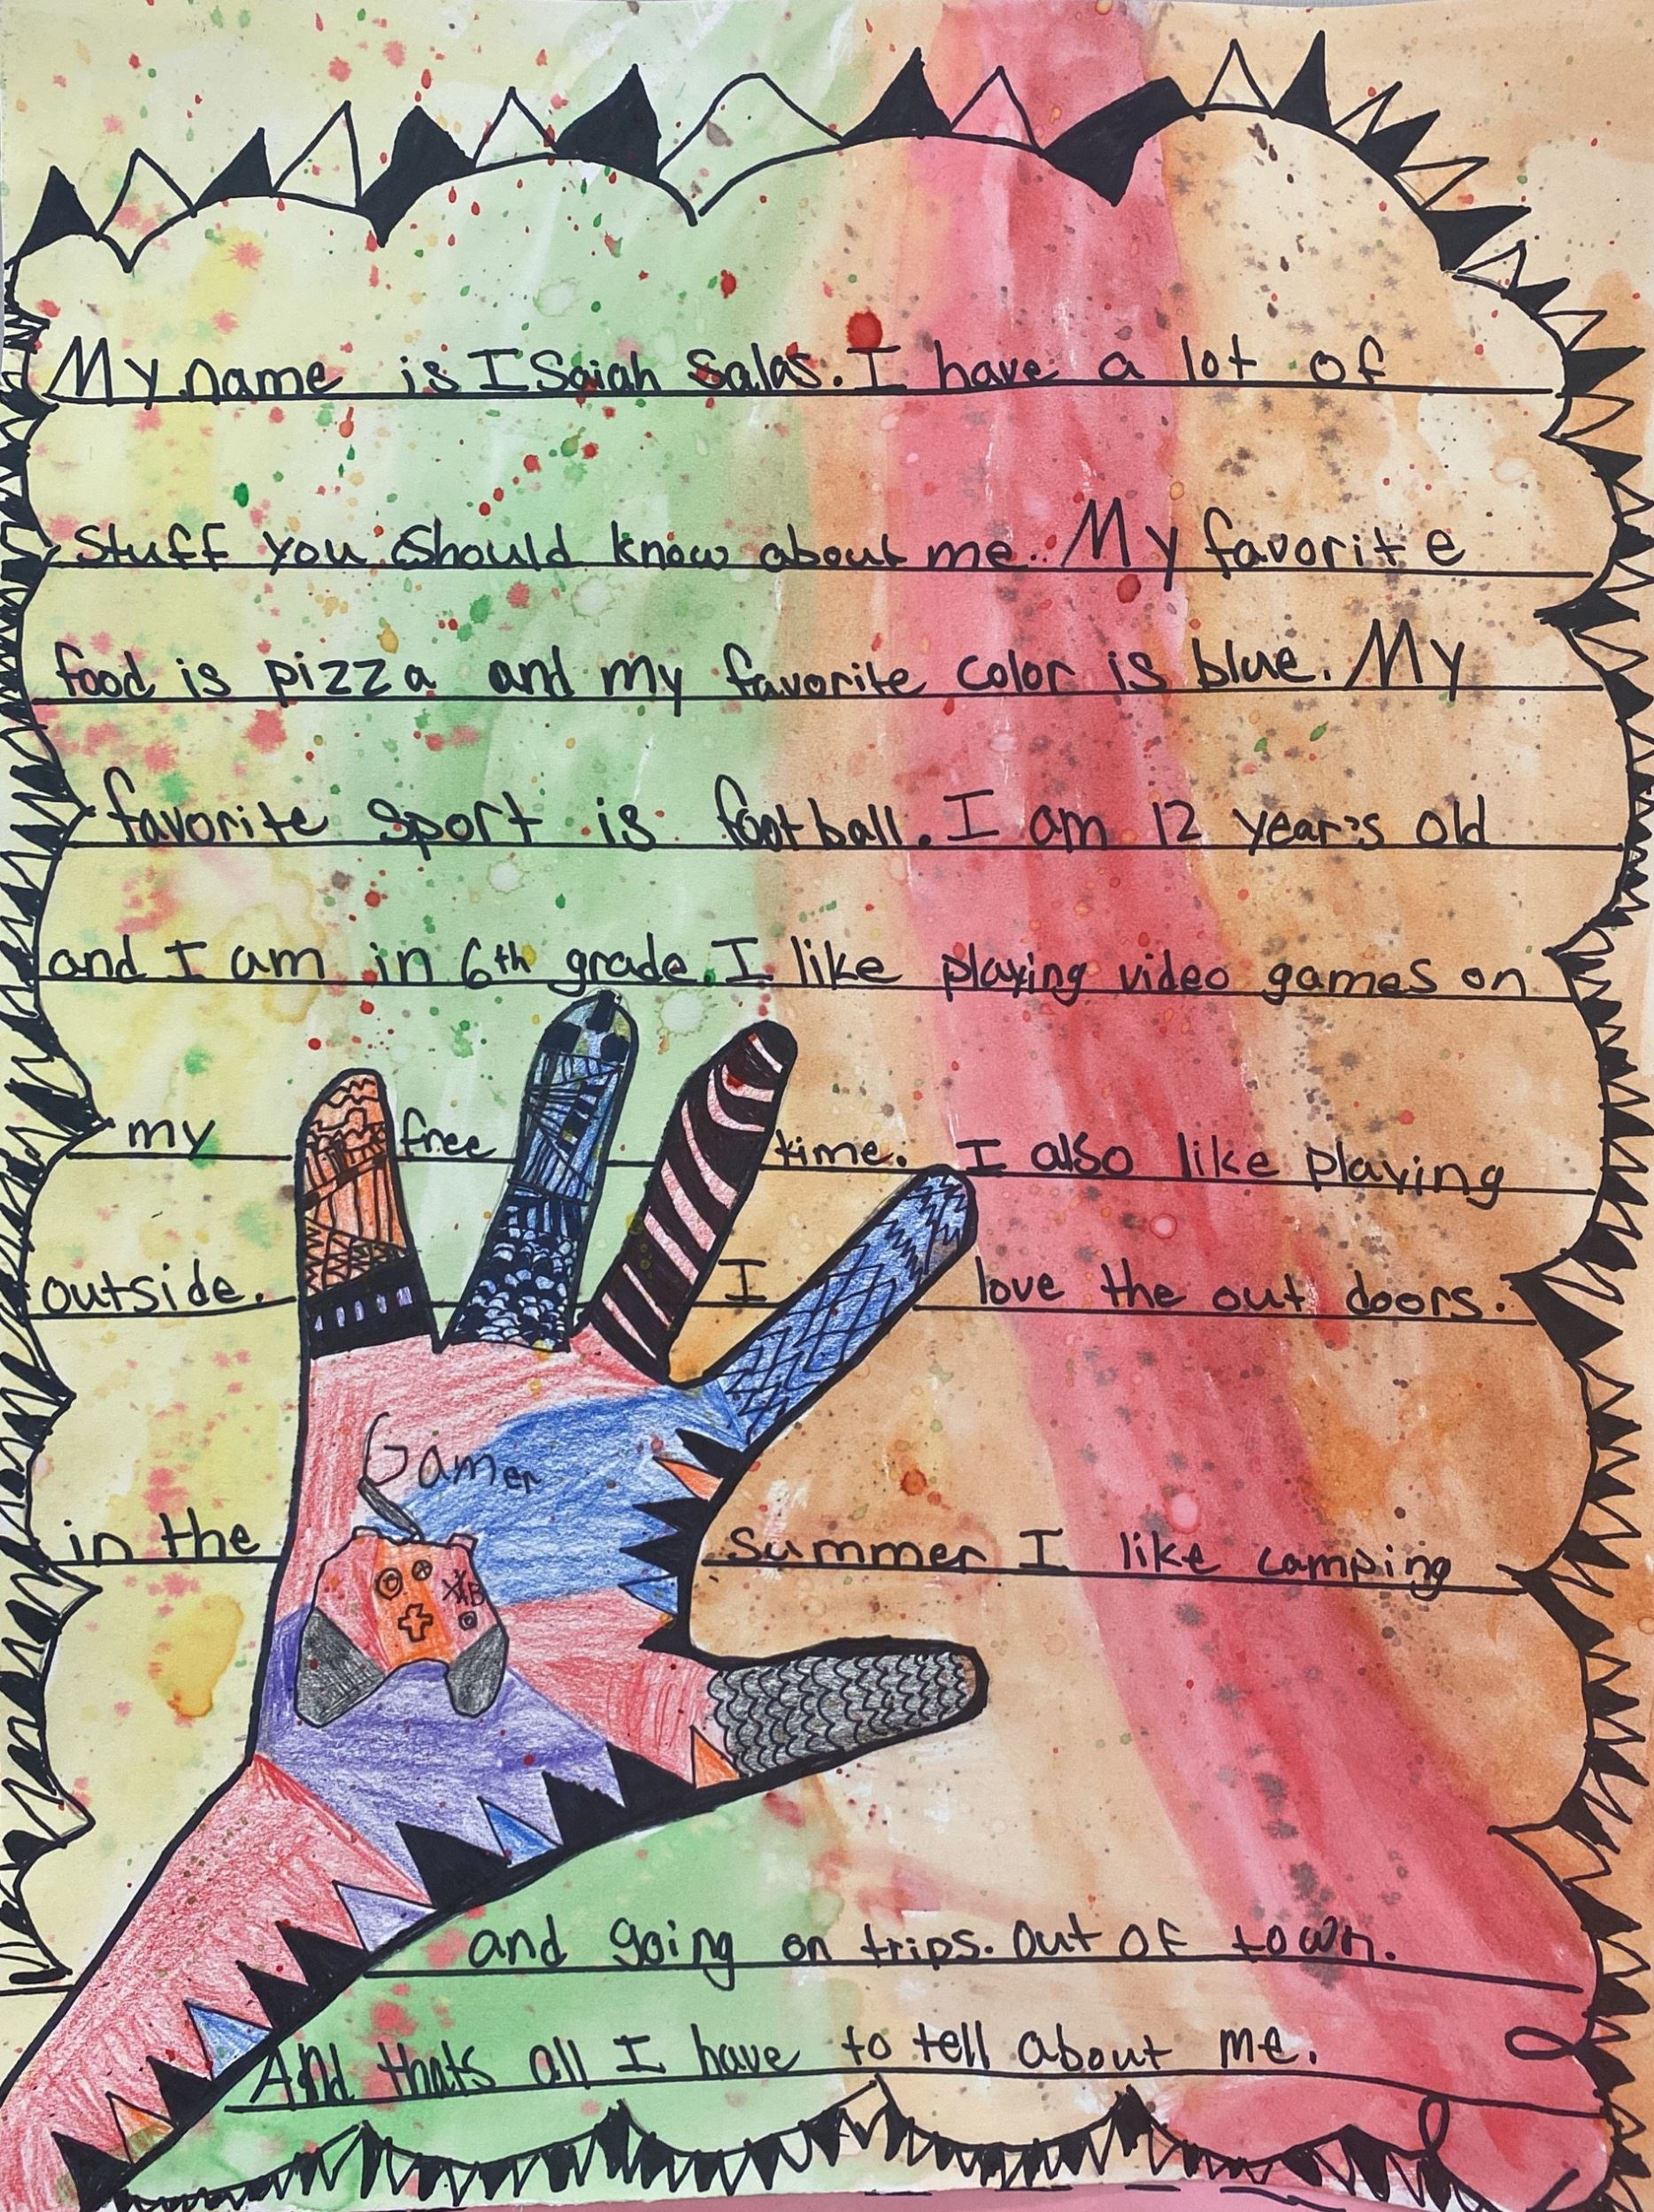 My name is ISaiah Salas. I have a lot of
Stuff you Should know about me. My favorite
food is pizza and my favorite color is blue. My
favorite sport is football. I am 12 year's old
and I am in 6th grade. I like playing video games on
my free time. I also like playing
outside. I love the out doors.
Gamer
in the Summer I like camping
and going on trips. Out OF town.
And thats all I have to tell about me.